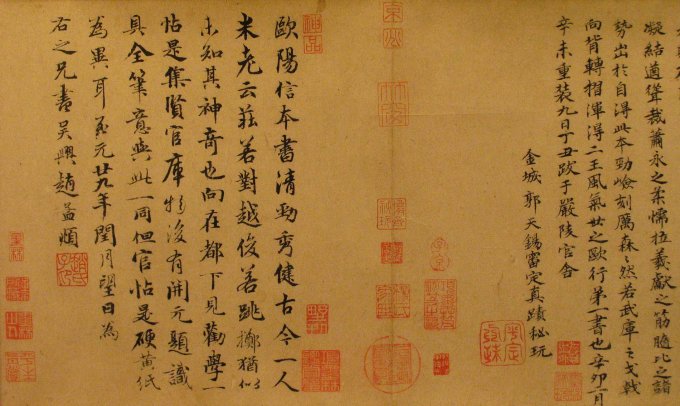 凝結遒聳裁蕭永之柔懦拉羲獻之筋髓比之諸
勢出於自得此本勁嶮刻厲森々然若武庫之戈戟
向背轉摺渾得二王風氣世之歐行第一書也辛卯月
辛未重裝九日丁丑跋于嚴陵官舍
金城郭天錫審定真蹟秘玩
神品
歐陽信本書清勁秀健古今一人
米老云莊若對越俊若跳擲猶似
未知其神奇也向在都下見勸學一
帖是集賢官庫物後有開元題識
具全筆意與此一同但官帖是硬黃紙
為異耳至元廿九年閏月望日為
右之兄書吳興趙孟頫